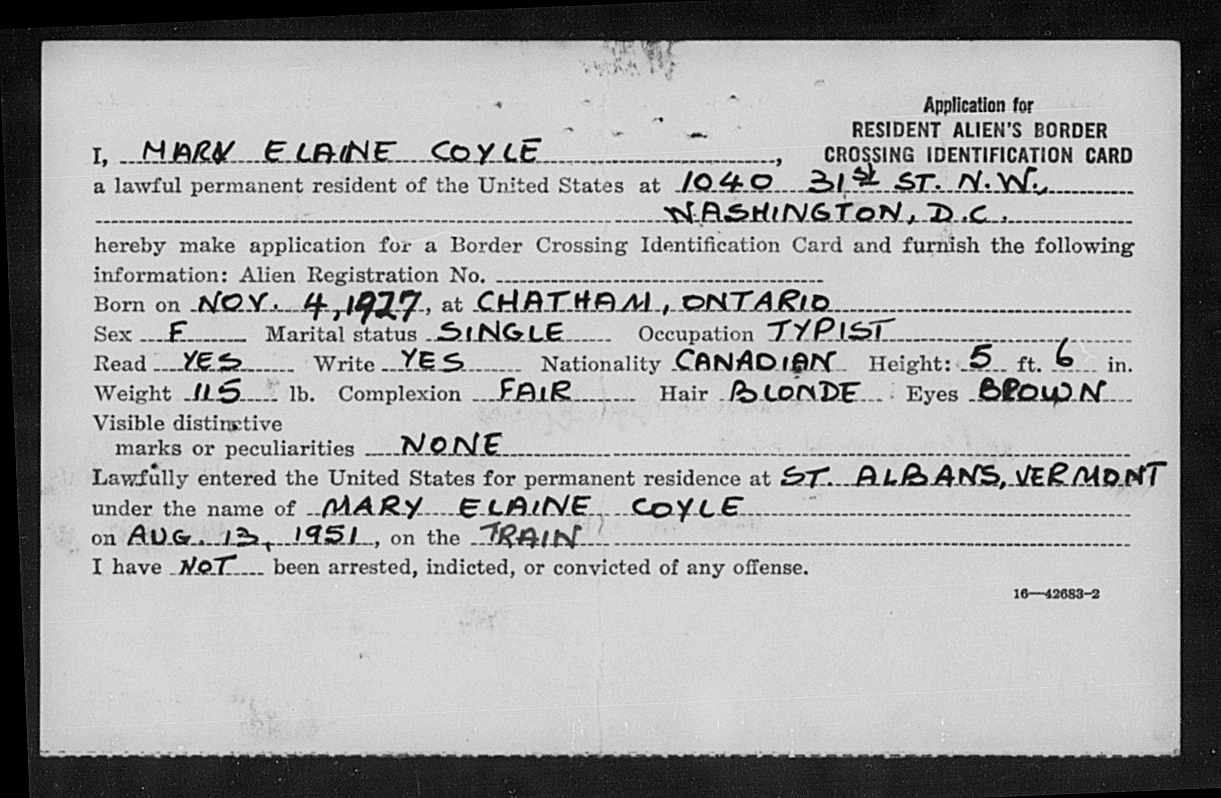 Application for
RESIDENT ALIEN'S BORDER
CROSSING IDENTIFICATION CARD
I, MARY ELAINE COYLE,
a lawful permanent resident of the United States at 1040 31st ST. N.W.,
WASHINGTON, D.C.
hereby make application for a Border Crossing Identification Card and furnish the following
information: Alien Registration No.
Born on NOV. 4, 1927, at CHATHAM, ONTARIO
Sex F Marital status SINGLE Occupation TYPIST
Read YES Write YES Nationality CANADIAN Height: 5 ft. 6 in.
Weight 115 lb. Complexion FAIR Hair BLONDE Eyes BROWN
Visible distinctive
marks or peculiarities NONE
Lawfully entered the United States for permanent residence at ST. ALBANS, VERMONT
under the name of MARY ELAINE COYLE
on AUG. 13, 1951, on the TRAIN
I have NOT been arrested, indicted, or convicted of any offense.
16—42683-2